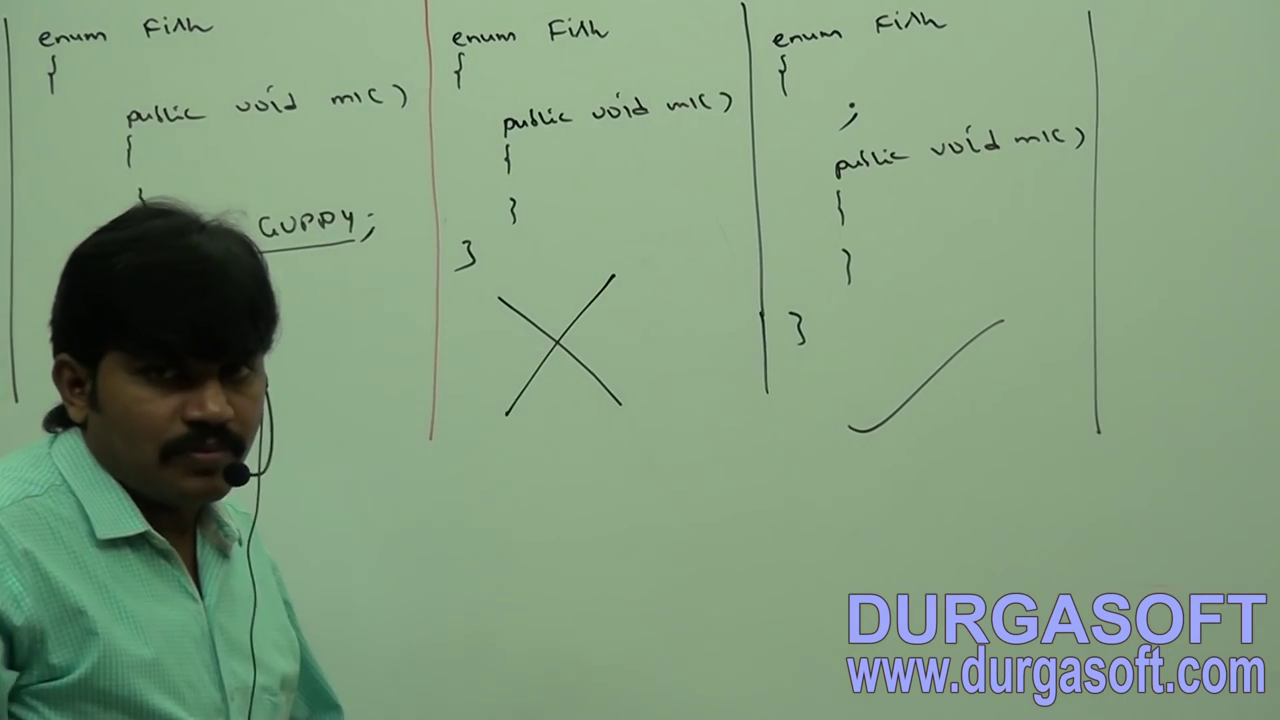 enum Fish
{
public void m1()
{
}
GUPPY;
enum Fish
{
public void m1()
{
}
}
enum Fish
{
;
public void m1()
{
}
}
DURGASOFT
www.durgasoft.com